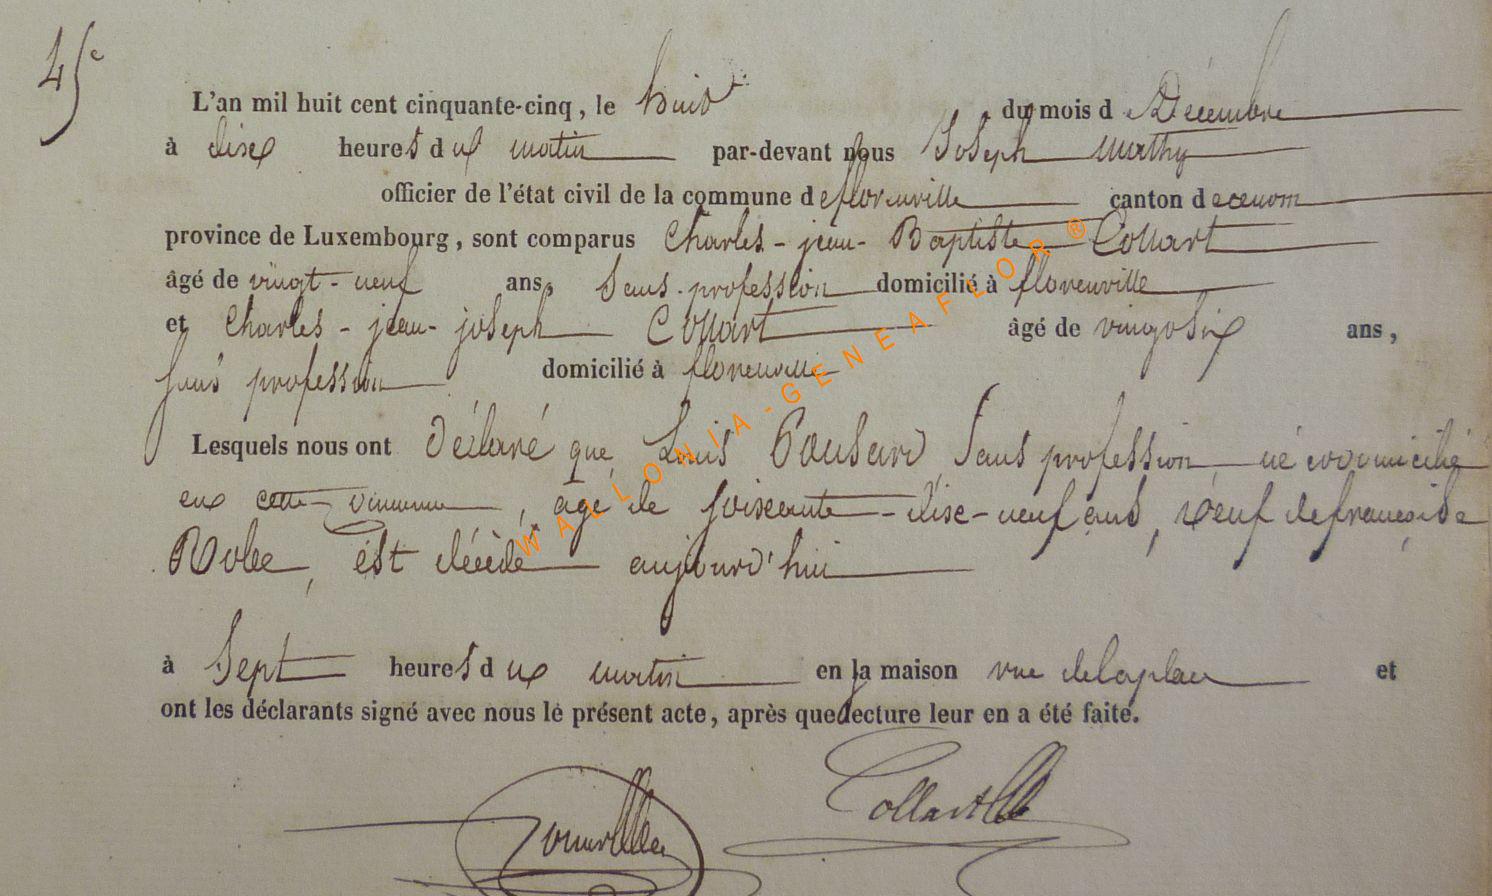 45e
L'an mil huit cent cinquante-cinq, le huit du mois de Décembre
à dix heures du matin par-devant nous Joseph mathy
officier de l'état civil de la commune de florenville canton de
province de Luxembourg, sont comparus Charles-jean-Baptiste Collart
âgé de vingt-neuf ans, Sans profession domicilié à florenville
et Charles-jean-joseph Collart âgé de vingt Six ans,
Sans profession domicilié à florenville
Lesquels nous ont Déclaré que Louis Pousard Sans profession, né domicilié
en cette, âgé de soixante-dix-neuf ans, veuf de françoise
est décédé aujourd'hui
à Sept heures du matin en la maison rue de la place et
ont les déclarants signé avec nous le présent acte, après que lecture leur en a été faite.
Collart
WALLONIA-GENEAFLOR®